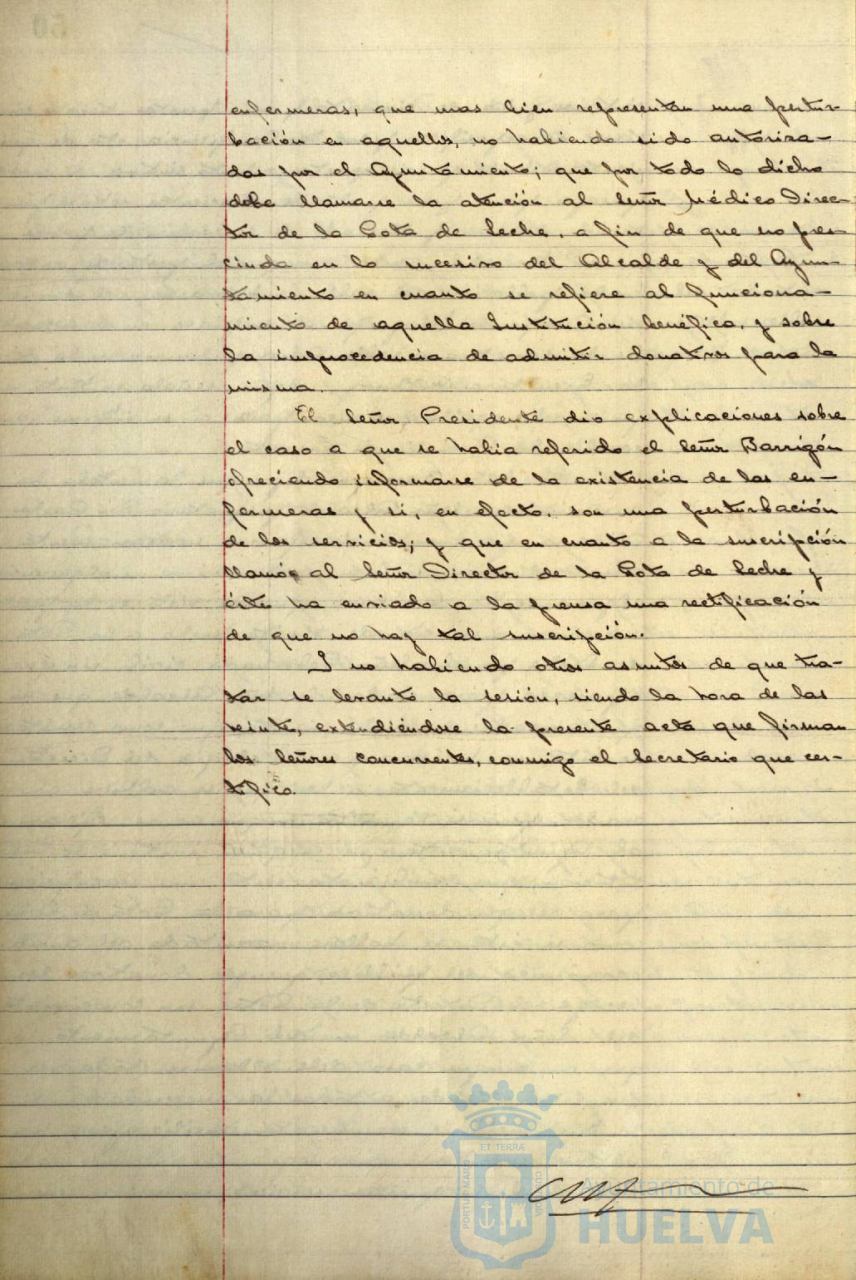 enfermeras, que mas bien representan una pertur-
bación en aquellos, no habiendo sido autoriza-
das por el Ayuntamiento; que por todo lo dicho
debe llamarse la atención al Señor Médico Direc-
tor de la Gota de Leche, a fin de que no pres-
cinda en lo sucesivo del Alcalde y del Ayun-
tamiento en cuanto se refiere al funciona-
miento de aquella Institución benéfica, y sobre
la improcedencia de admitir donativos para la
misma.
El Señor Presidente dio explicaciones sobre
el caso a que se habia referido el Señor Barrigón
ofreciendo informarse de la existencia de las en-
fermeras y si, en efecto, son una perturbación
de los servicios; y que en cuanto a la suscripción
llamó al Señor Director de la Gota de Leche y
éste ha enviado a la prensa una rectificación
de que no hay tal suscripción.
Y no habiendo otros asuntos de que tra-
tar se levantó la sesión, siendo la hora de las
veinte, extendiéndose la presente acta que firman
los Señores concurrentes, conmigo el Secretario que cer-
tifico.
ET TERRÆ
PORTUS MARIS
Ayuntamiento de
HUELVA